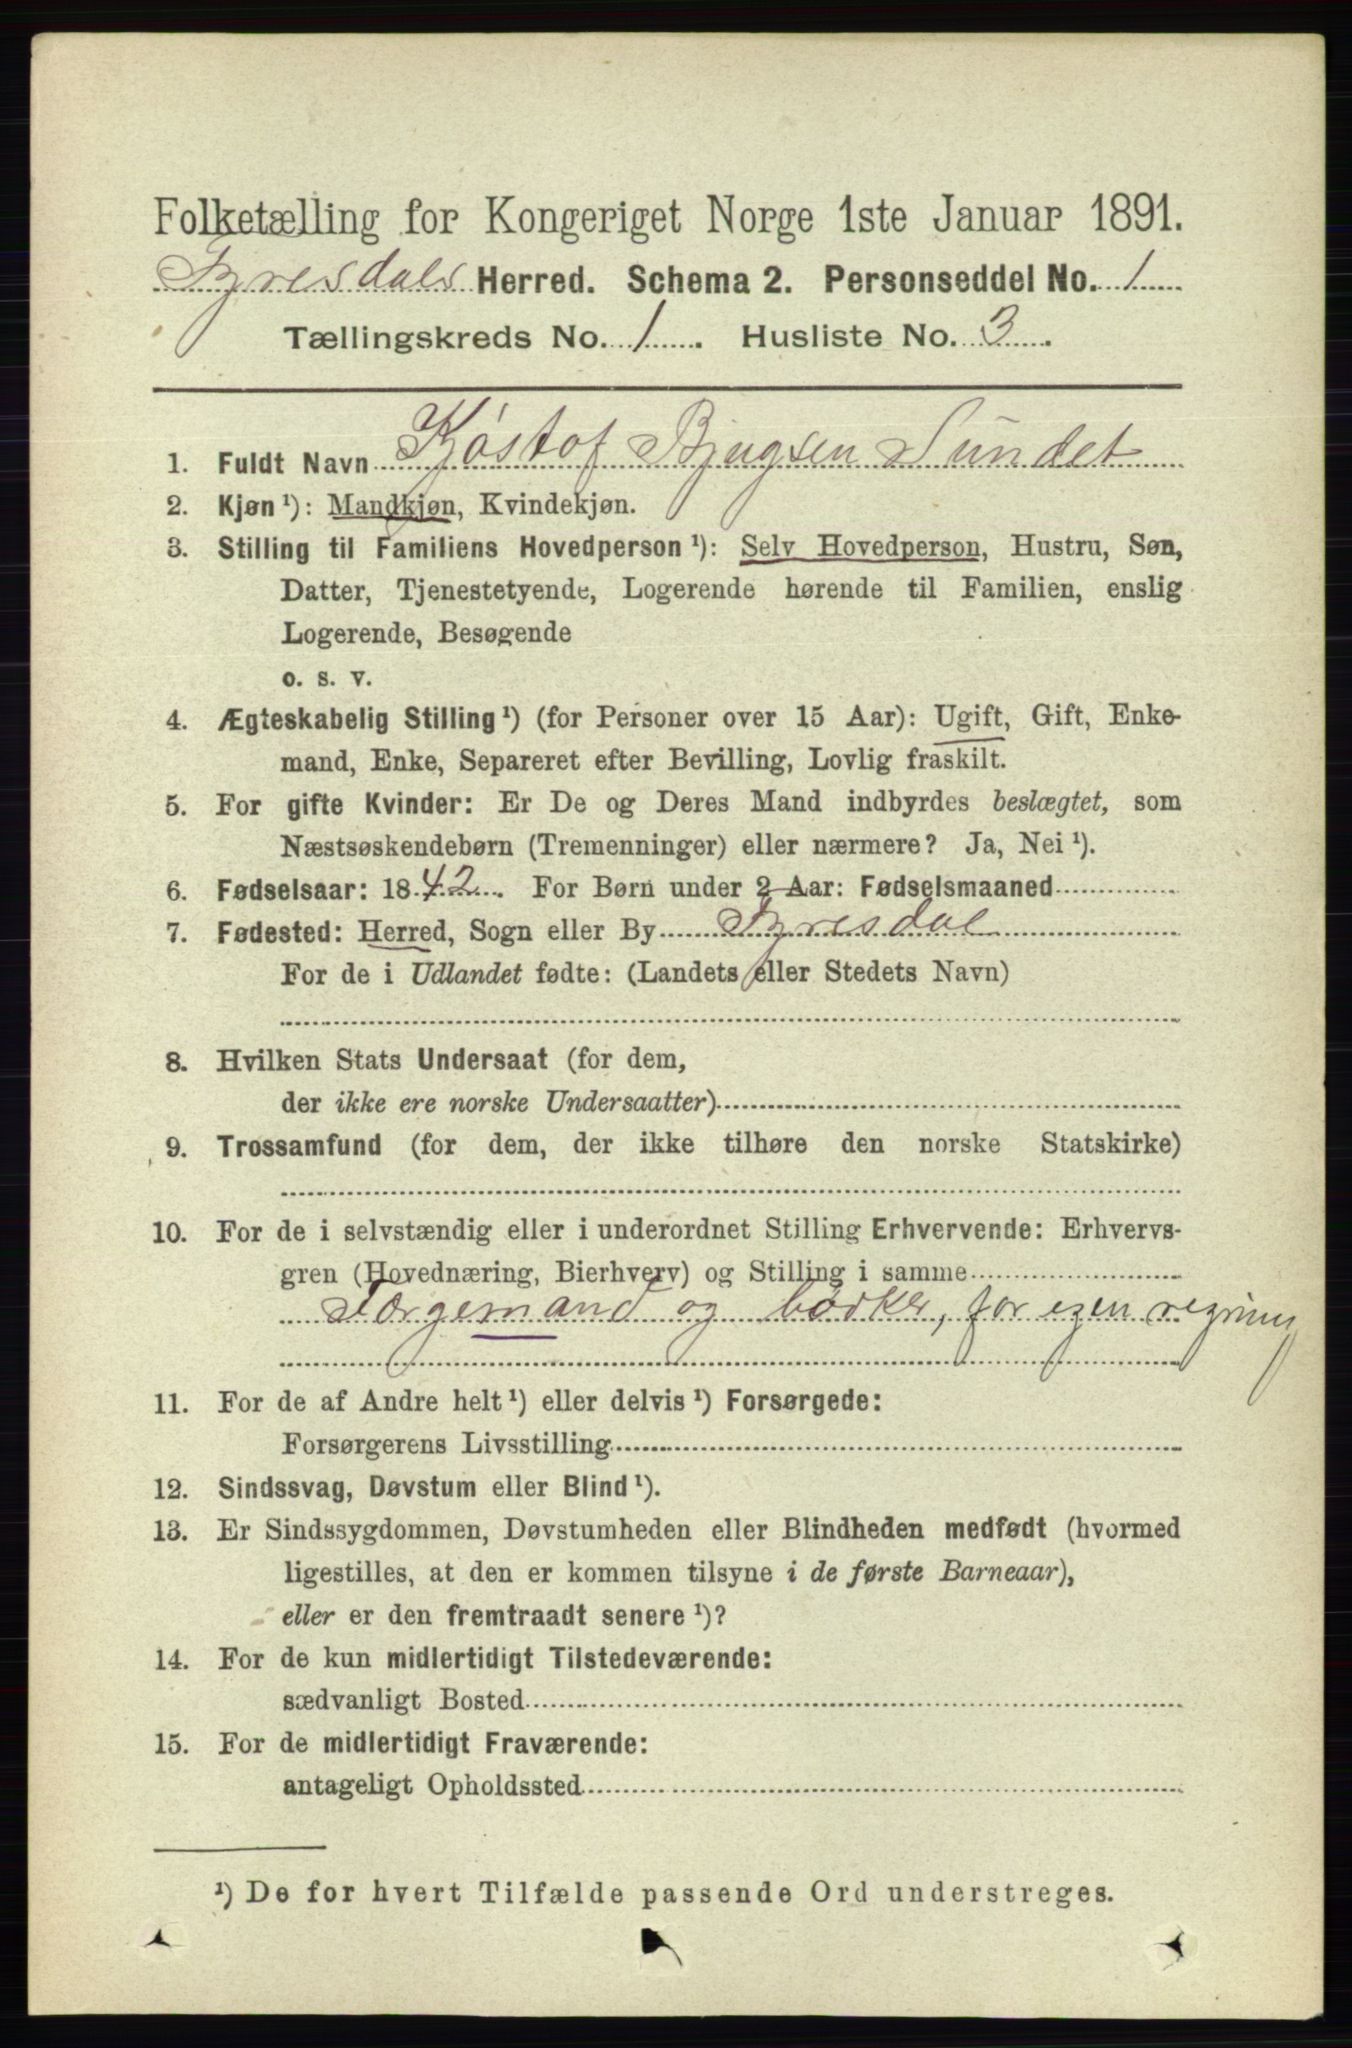 Folketælling for Kongeriget Norge 1ste Januar 1891.
Fyresdals Herred. Schema 2. Personseddel No. 1
Tællingskreds No. 1. Husliste No. 3.
1. Fuldt Navn Kjøstof Bjugsen Sundet
2. Kjøn ¹): Mandkjøn, Kvindekjøn.
3. Stilling til Familiens Hovedperson ¹): Selv Hovedperson, Hustru, Søn,
Datter, Tjenestetyende, Logerende hørende til Familien, enslig
Logerende, Besøgende
o. s. v.
4. Ægteskabelig Stilling ¹) (for Personer over 15 Aar): Ugift, Gift, Enke-
mand, Enke, Separeret efter Bevilling, Lovlig fraskilt.
5. For gifte Kvinder: Er De og Deres Mand indbyrdes beslægtet, som
Næstsøskendebørn (Tremenninger) eller nærmere? Ja, Nei ¹).
6. Fødselsaar: 1842. For Børn under 2 Aar: Fødselsmaaned
7. Fødested: Herred, Sogn eller By Fyresdal
For de i Udlandet fødte: (Landets eller Stedets Navn)
8. Hvilken Stats Undersaat (for dem,
der ikke ere norske Undersaatter)
9. Trossamfund (for dem, der ikke tilhøre den norske Statskirke)
10. For de i selvstændig eller i underordnet Stilling Erhvervende: Erhvervs-
gren (Hovednæring, Bierhverv) og Stilling i samme
og bødker, for egen regning
11. For de af Andre helt ¹) eller delvis ¹) Forsørgede:
Forsørgerens Livsstilling
12. Sindssvag, Døvstum eller Blind ¹).
13. Er Sindssygdommen, Døvstumheden eller Blindheden medfødt (hvormed
ligestilles, at den er kommen tilsyne i de første Barneaar),
eller er den fremtraadt senere ¹)?
14. For de kun midlertidigt Tilstedeværende:
sædvanligt Bosted
15. For de midlertidigt Fraværende:
antageligt Opholdssted
¹) De for hvert Tilfælde passende Ord understreges.